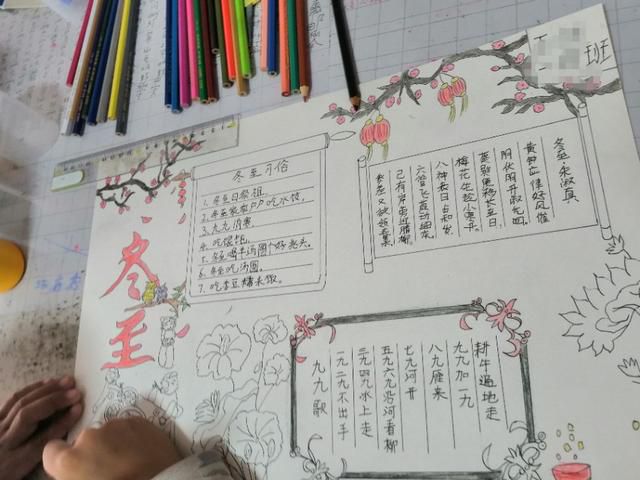 班
冬至
冬至习俗
1. 冬至日祭祖.
2. 冬至家家户户吃水饺.
3. 九九消寒.
4. 吃馄饨.
5. 喝羊汤个好兆头.
6. 冬至吃汤圆.
7. 吃赤豆糯米饭.
冬至·朱淑真
黄钟应律好风催
阴伏阳升淑气回
葵影便移长至日
梅花先趁小寒开
八神表日占和岁
六管飞葭动细灰
已有岸旁迎腊柳
参差又欲领春来
九九歌
一九二九不出手
三九四九冰上走
五九六九沿河看柳
七九河开
八九雁来
九九加一九
耕牛遍地走